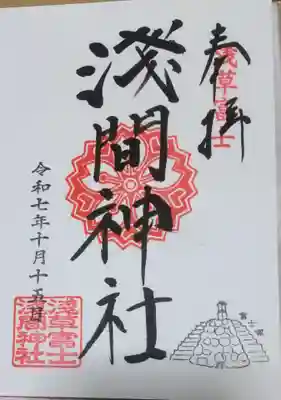 奉拝
浅草富士
淺間神社
令和七年十月十五日
浅草富士
浅間神社
富士塚